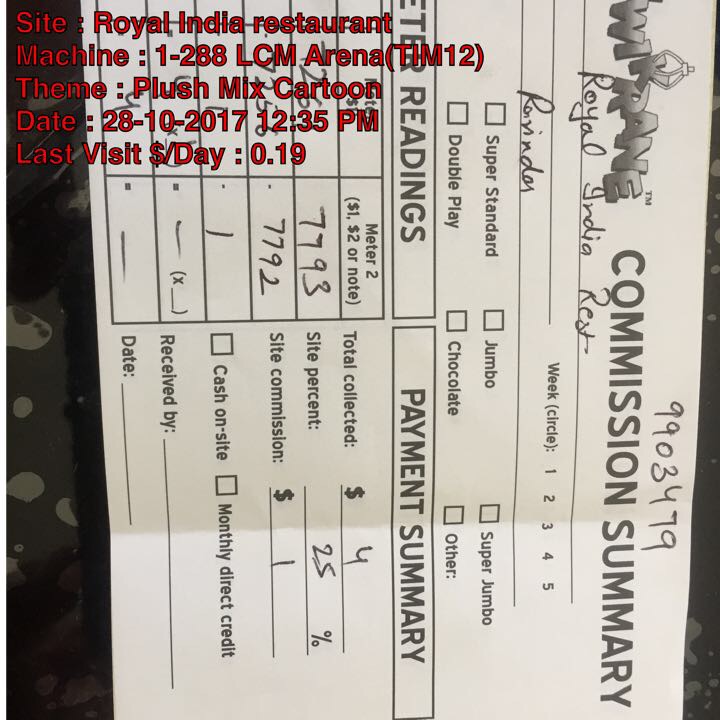 Site : Royal India restaurant
Machine : 1-288 LCM Arena(TIM12)
Theme : Plush Mix Cartoon
Date : 28-10-2017 12:35 PM
Last Visit $/Day : 0.19
9903479
COMMISSION SUMMARY
Royal India Rest
Week (circle): 1 2 3 4 5
Ravinder
Super Standard
Jumbo
Super Jumbo
Double Play
Chocolate
Other:
METER READINGS
PAYMENT SUMMARY
Meter 2
($1, $2 or note)
7793
7792
1
(x_)
Total collected: $ 4
Site percent: 25 %
Site commission: $ 1
Cash on-site
Monthly direct credit
Received by:
Date: